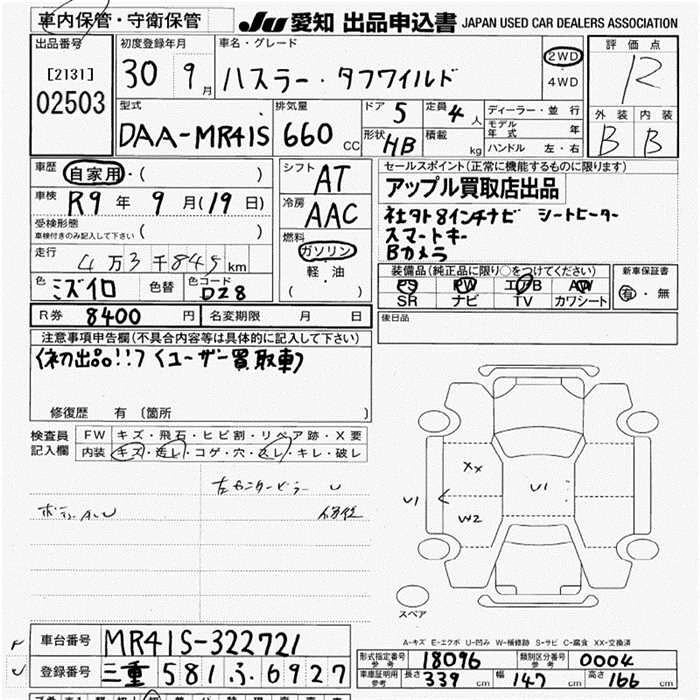 車内保管・守衛保管
JU 愛知 出品申込書 JAPAN USED CAR DEALERS ASSOCIATION
出品番号 [2131] 02503
初度登録年月 30 9月
車名・グレード ハスラー・タフワイルド
2WD 4WD
評価点 R
外装 B 内装 B
型式 DAA-MR41S
排気量 660 CC
ドア 5 定員 4人
形状 HB 積載 kg
ディーラー・並行
モデル年式 年
ハンドル 左・右
車歴 自家用・( )
車検 R9年 9月(19日)
受検形態 ( )
車検付きのみ記入して下さい
走行 4万3千845km
色 ミズイロ 色替 色コード DZ8
シフト AT
冷房 AAC
燃料 ガソリン
軽・油
( )
セールスポイント(正常に機能するものに限ります)
アップル買取店出品
社外8インチナビ シートヒーター
スマートキー
Bカメラ
装備品(純正品に限り○をつけてください)
PS PW エアB AW
SR ナビ TV カワシート
新車保証書 有・無
R券 8400円 名変期限 月 日
後日品
注意事項申告欄(不具合内容等は具体的に記入して下さい)
(初出品!!)(ユーザー買取車)
修復歴 有 〔箇所 〕
検査員記入欄
FW キズ・飛石・ヒビ割・リペア跡・X要
内装 キズ・汚レ・コゲ・穴・スレ・キレ・破レ
ボディAU
U1 XX W2 U1
スペア
A-キズ E-エクボ U-凹み W-補修跡 S-サビ C-腐食 XX-交換済
車台番号 MR41S-322721
登録番号 三重 581 ふ 6927
形式指定番号 参考 18096 類別区分番号 参考 0004
車庫証明用 参考 長さ 339cm 幅 147cm 高さ 166cm